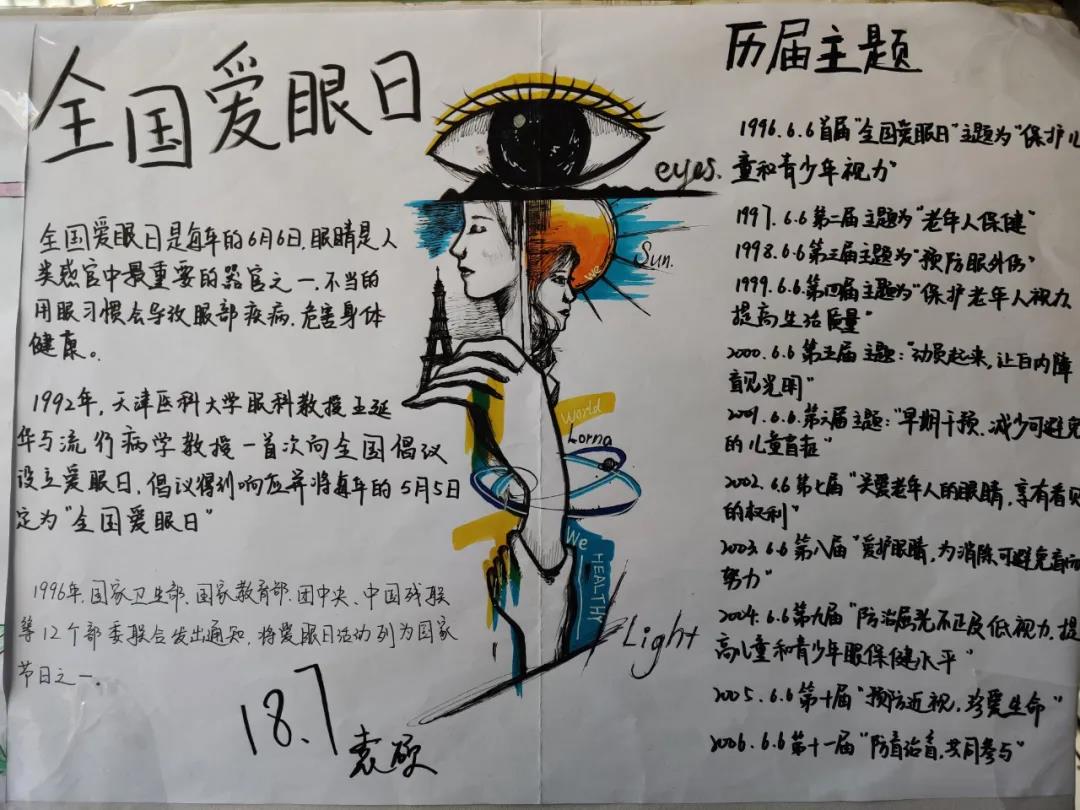 全国爱眼日
全国爱眼日是每年的6月6日,眼睛是人
类感官中最重要的器官之一.不当的
用眼习惯会导致眼部疾病.危害身体
健康。
1992年,天津医科大学眼科教授王延
华与流行病学教授一首次向全国倡议
设立爱眼日,倡议得到响应并将每年的5月5日
定为"全国爱眼日"
1996年,国家卫生部.国家教育部.团中央.中国残联
等12个部委联合发出通知,将爱眼日活动列为国家
节日之一.
18.7
袁硕
eyes.
Sun.
We
World
Lorna
We
HEALTHY
Light
历届主题
1996.6.6首届"全国爱眼日"主题为"保护儿
童和青少年视力"
1997.6.6第二届主题为"老年人保健"
1998.6.6第三届主题为"预防眼外伤"
1999.6.6.第四届主题为"保护老年人视力
提高生活质量"
2000.6.6第五届主题:"动员起来,让白内障
盲见光明"
2001.6.6.第六届主题:"早期干预.减少可避免
的儿童盲症"
2002.6.6第七届"关爱老年人的眼睛,享有看见
的权利"
2003.6.6第八届"爱护眼睛,为消除可避免盲而
努力"
2004.6.6第九届"防治屈光不正及低视力,提
高儿童和青少年眼保健水平"
2005.6.6第十届"预防近视,珍爱生命"
2006.6.6第十一届"防盲治盲,共同参与"